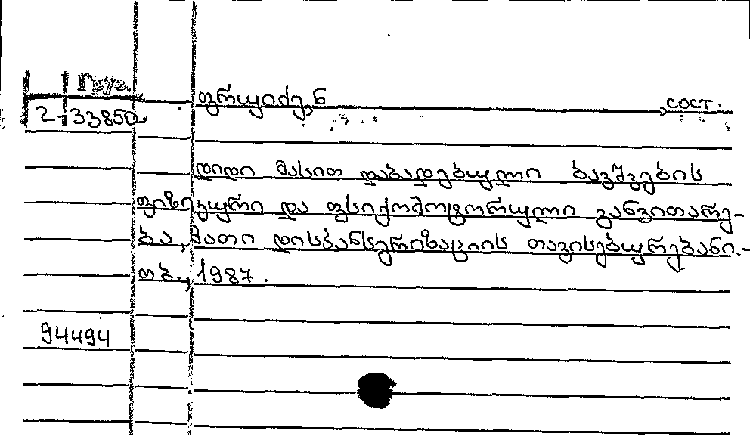 ფრუიძე, ნ сост.
2-33850
დიდი მასით დაბადებული ბავშვების
ფიზიკური და ფსიქომოტორული განვითარე-
ბა, მათი დისპანსერიზაციის თავისებურებანი.-
თბ., 1987.
94494